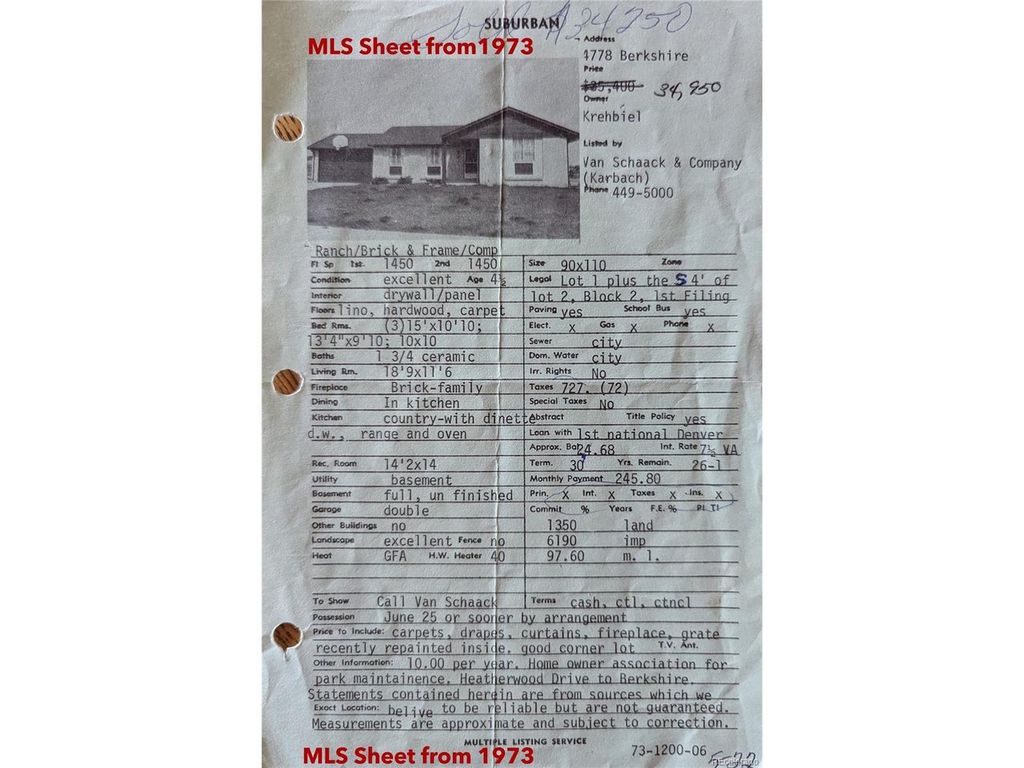 Sold $34250
SUBURBAN
MLS Sheet from1973
Address
4778 Berkshire
Price
$35,400 34,950
Owner
Krehbiel
Listed by
Van Schaack & Company
(Karbach)
Phone 449-5000
Ranch/Brick & Frame/Comp
Fl Sp 1st. 1450 2nd 1450
Condition excellent Age 4½
Interior drywall/panel
Floors lino, hardwood, carpet
Bed Rms. (3)15'x10'10;
13'4"x9'10; 10x10
Baths 1 3/4 ceramic
Living Rm. 18'9x11'6
Fireplace Brick-family
Dining In kitchen
Kitchen country-with dinette
d.w., range and oven
Rec. Room 14'2x14
Utility basement
Basement full, un finished
Garage double
Other Buildings no
Landscape excellent Fence no
Heat GFA H.W. Heater 40
Size 90x110 Zone
Legal Lot 1 plus the S 4' of
lot 2, Block 2, 1st Filing
Paving yes School Bus yes
Elect. x Gas x Phone x
Sewer city
Dom. Water city
Irr. Rights No
Taxes 727. (72)
Special Taxes No
Abstract Title Policy yes
Loan with 1st national Denver
Approx. Bal 24.68 Int. Rate 7½ VA
Term. 30 Yrs. Remain. 26-1
Monthly Payment 245.80
Prin. X Int. X Taxes X Ins. X
Commit % Years F.E. % PI TI
1350 land
6190 imp
97.60 m. l.
To Show Call Van Schaack Terms cash, ctl, ctncl
Possession June 25 or sooner by arrangement
Price to Include: carpets, drapes, curtains, fireplace, grate
recently repainted inside. good corner lot T.V. Ant.
Other Information: 10.00 per year. Home owner association for
park maintainence. Heatherwood Drive to Berkshire.
Statements contained herein are from sources which we
Exact Location: belive to be reliable but are not guaranteed.
Measurements are approximate and subject to correction.
MULTIPLE LISTING SERVICE
73-1200-06
MLS Sheet from 1973